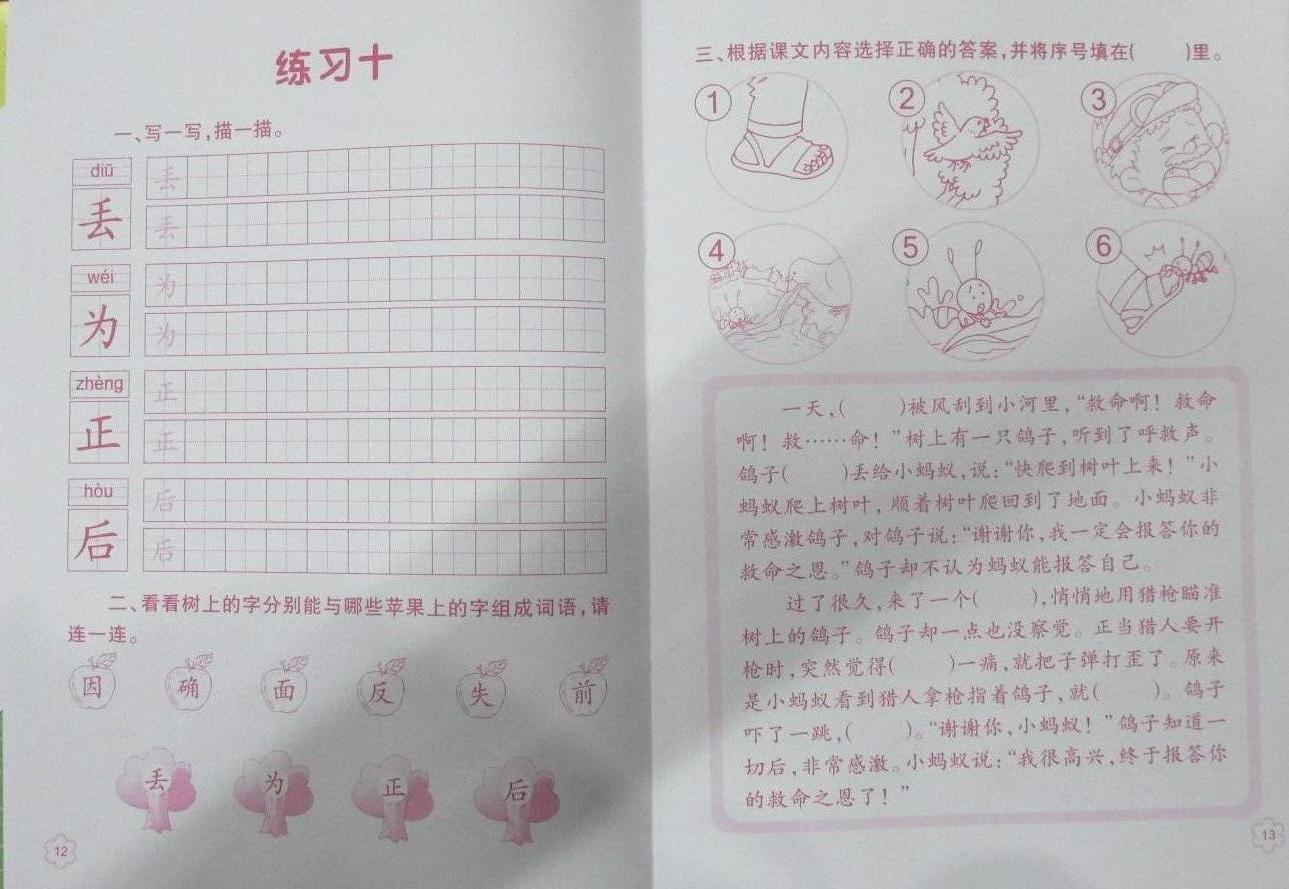 练习十
一、写一写,描一描。
diū
丢
丢
丢
wéi
为
为
为
zhèng
正
正
正
hòu
后
后
后
二、看看树上的字分别能与哪些苹果上的字组成词语,请
连一连。
因 确 面 反 失 前
丢 为 正 后
12
三、根据课文内容选择正确的答案,并将序号填在( )里。
① ② ③
④ ⑤ ⑥
一天,( )被风刮到小河里,“救命啊!救命
啊!救……命!”树上有一只鸽子,听到了呼救声。
鸽子( )丢给小蚂蚁,说:“快爬到树叶上来!”小
蚂蚁爬上树叶,顺着树叶爬回到了地面。小蚂蚁非
常感激鸽子,对鸽子说:“谢谢你,我一定会报答你的
救命之恩。”鸽子却不认为蚂蚁能报答自己。
过了很久,来了一个( ),悄悄地用猎枪瞄准
树上的鸽子。鸽子却一点也没察觉。正当猎人要开
枪时,突然觉得( )一痛,就把子弹打歪了。原来
是小蚂蚁看到猎人拿枪指着鸽子,就( )。鸽子
吓了一跳,( )。“谢谢你,小蚂蚁!”鸽子知道一
切后,非常感激。小蚂蚁说:“我很高兴,终于报答你
的救命之恩了!”
13